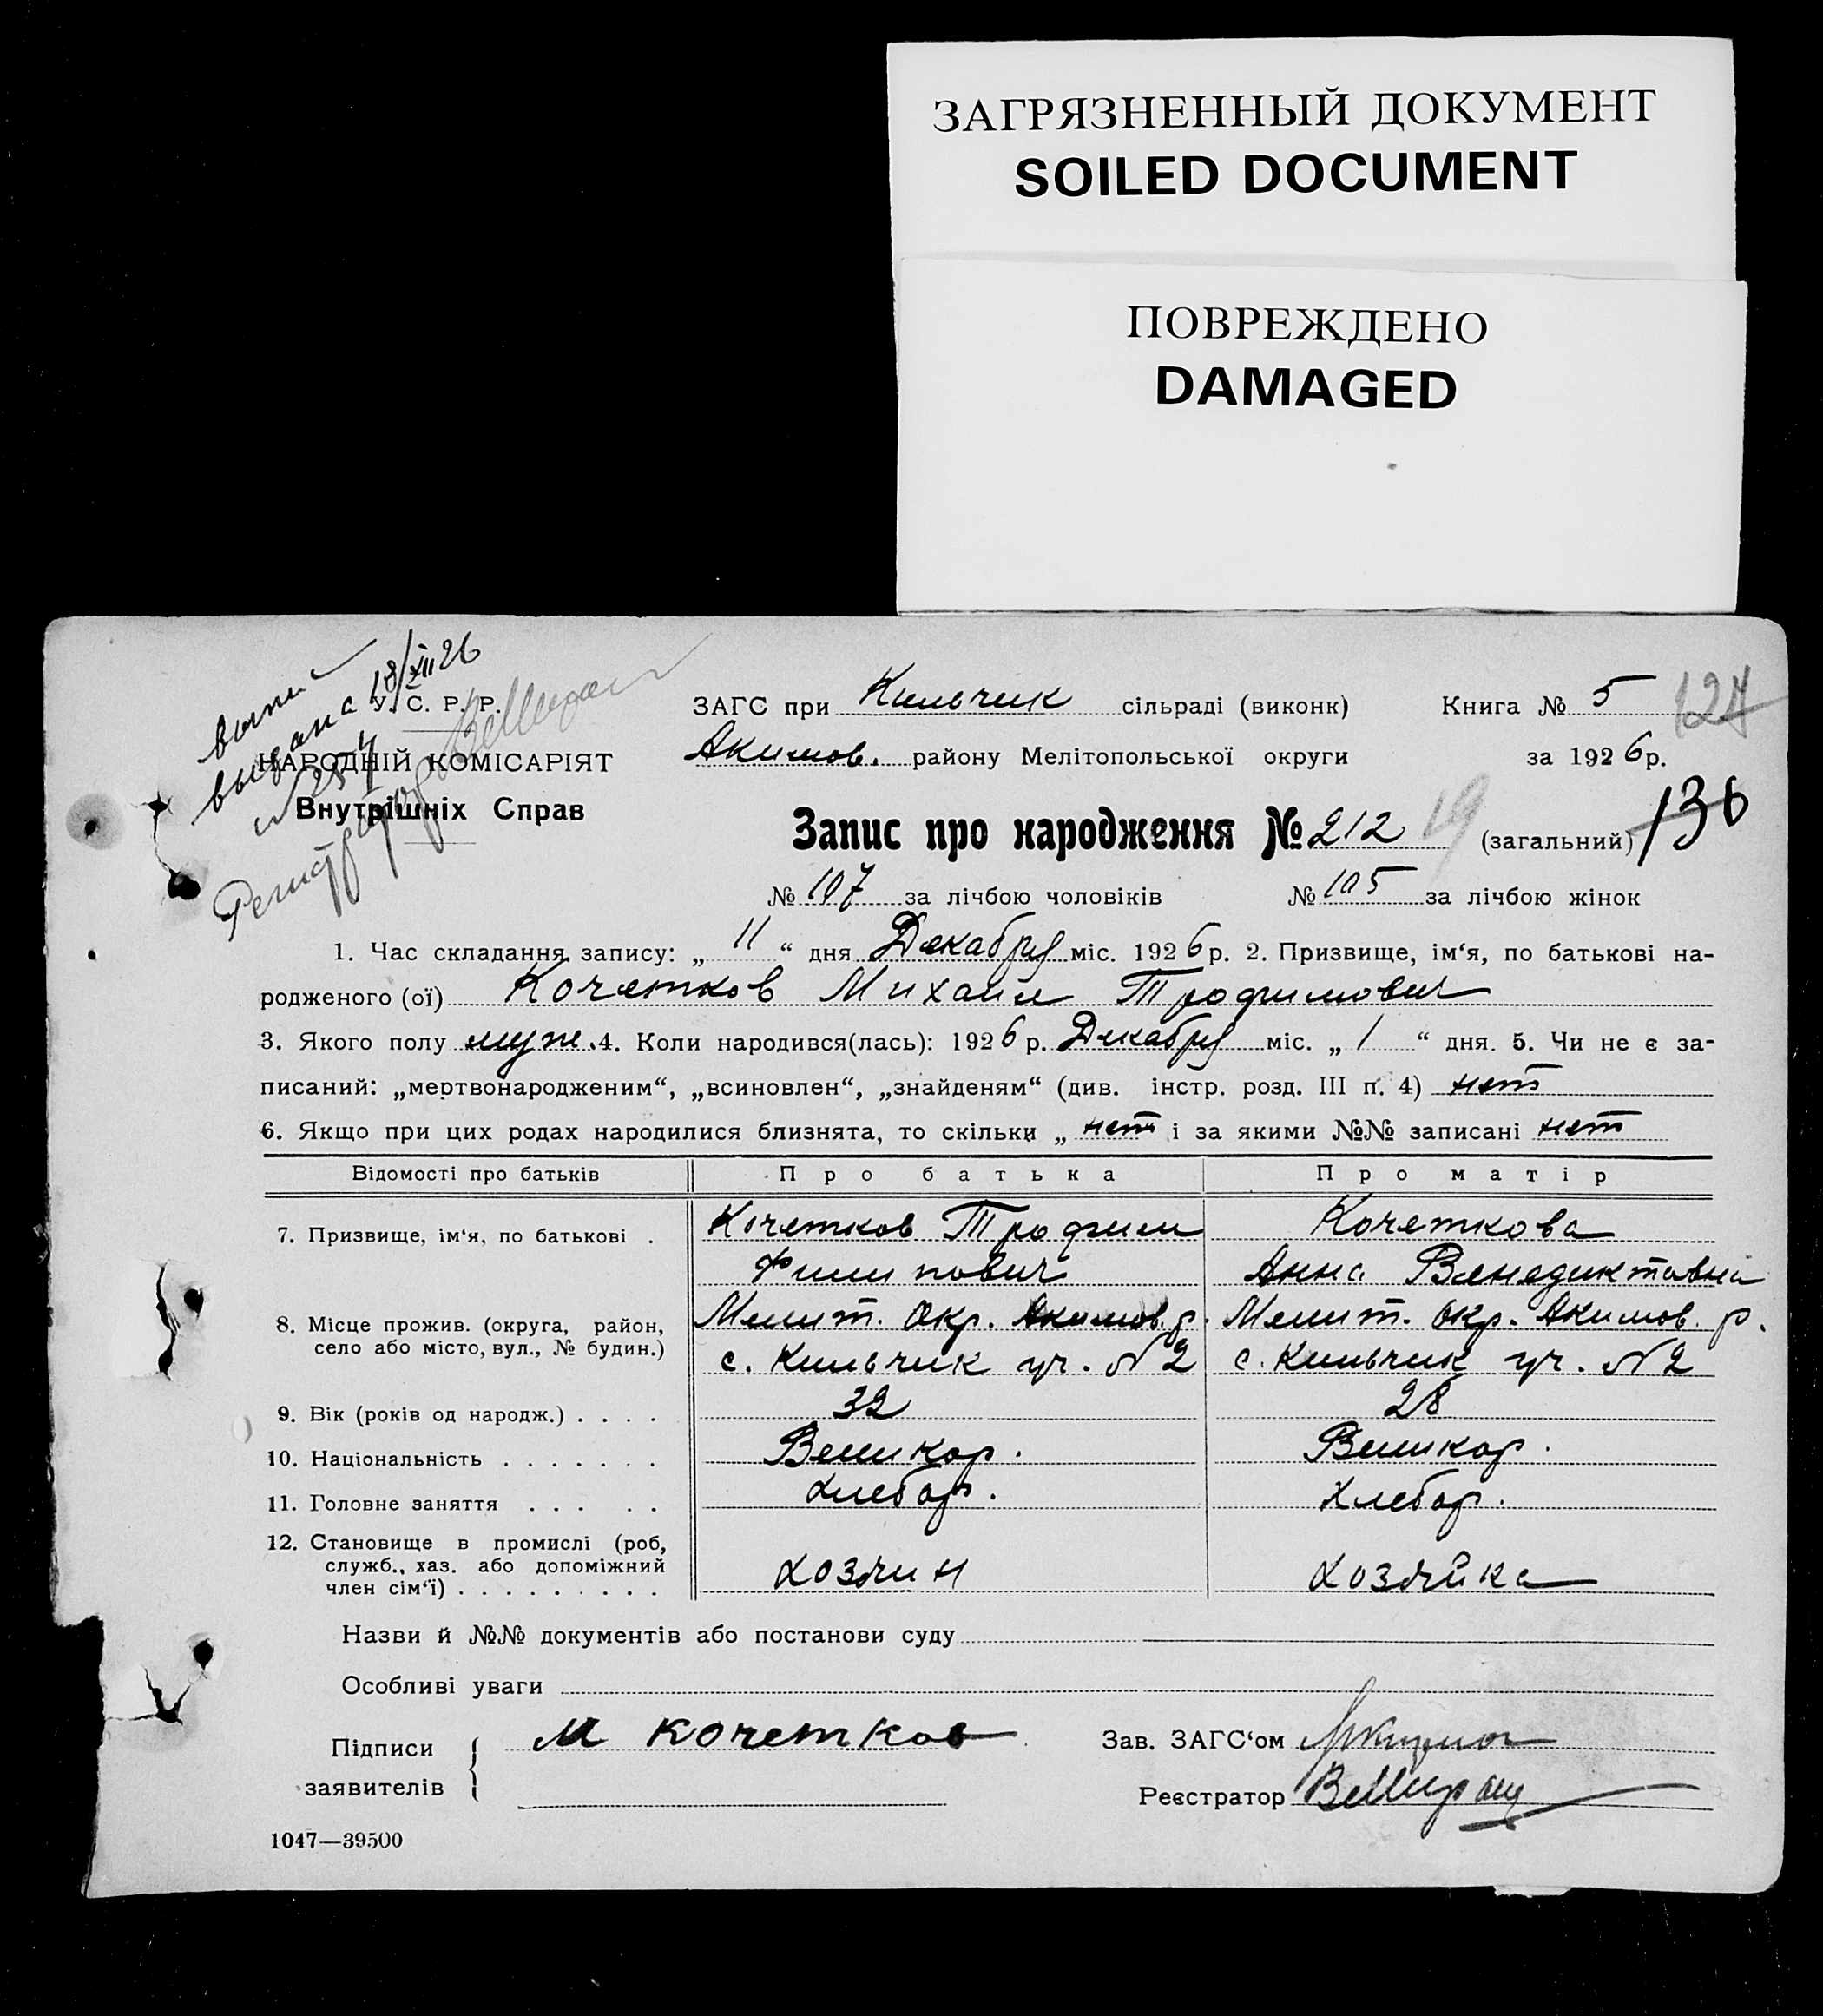 ЗАГРЯЗНЕННЫЙ ДОКУМЕНТ
SOILED DOCUMENT
ПОВРЕЖДЕНО
DAMAGED
выпис
выдана 18/XII 26
У. С. Р. Р.
НАРОДНІЙ КОМІСАРІЯТ
Внутрішніх Справ
ЗАГС при Кильчик сільраді (виконк) Книга № 5 124
Акимов. району Мелітопольської округи за 1926 р.
Запис про народження № 212 19 (загальний) 136
№ 107 за лічбою чоловіків № 105 за лічбою жінок
1. Час складання запису: „ 11 “ дня Декабря міс. 1926 р. 2. Призвище, ім‘я, по батькові на-
родженого (ої) Кочетков Михаил Трофимович
3. Якого полу муж. 4. Коли народився(лась): 1926 р. Декабря міс. „ 1 “ дня. 5. Чи не є за-
писаний: „мертвонародженим“, „всиновлен“, „знайденям“ (див. інстр. розд. III п. 4) нет
6. Якщо при цих родах народилися близнята, то скільки „ нет і за якими №№ записані нет
Відомості про батьків Про батька Про матір
7. Призвище, ім‘я, по батькові . Кочетков Трофим Кочеткова
Филипович Анна Венедиктавна
8. Місце прожив. (округа, район, Мелит. окр. Акимов. р. Мелит. окр. Акимов. р.
село або місто, вул., № будин.) с. Кильчик уч. N2 с. Кильчик уч. N2
9. Вік (років од народж.) . . . . 32 28
10. Національність . . . . . . . Великор. Великор.
11. Головне заняття . . . . . Хлебор. Хлебор.
12. Становище в промислі (роб,
служб., хаз. або допоміжний
член сім‘ї) . . . . . . . . . хозяин хозяйка
Назви й №№ документів або постанови суду
Особливі уваги
Підписи М Кочетков Зав. ЗАГС‘ом
заявителів Реєстратор
1047—39500